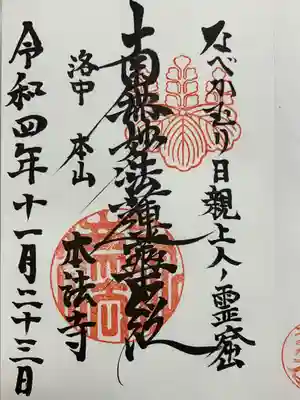 なべかむり日親上人ノ霊窟
南無妙法蓮華経
洛中 本山
本法寺
令和四年十一月二十三日